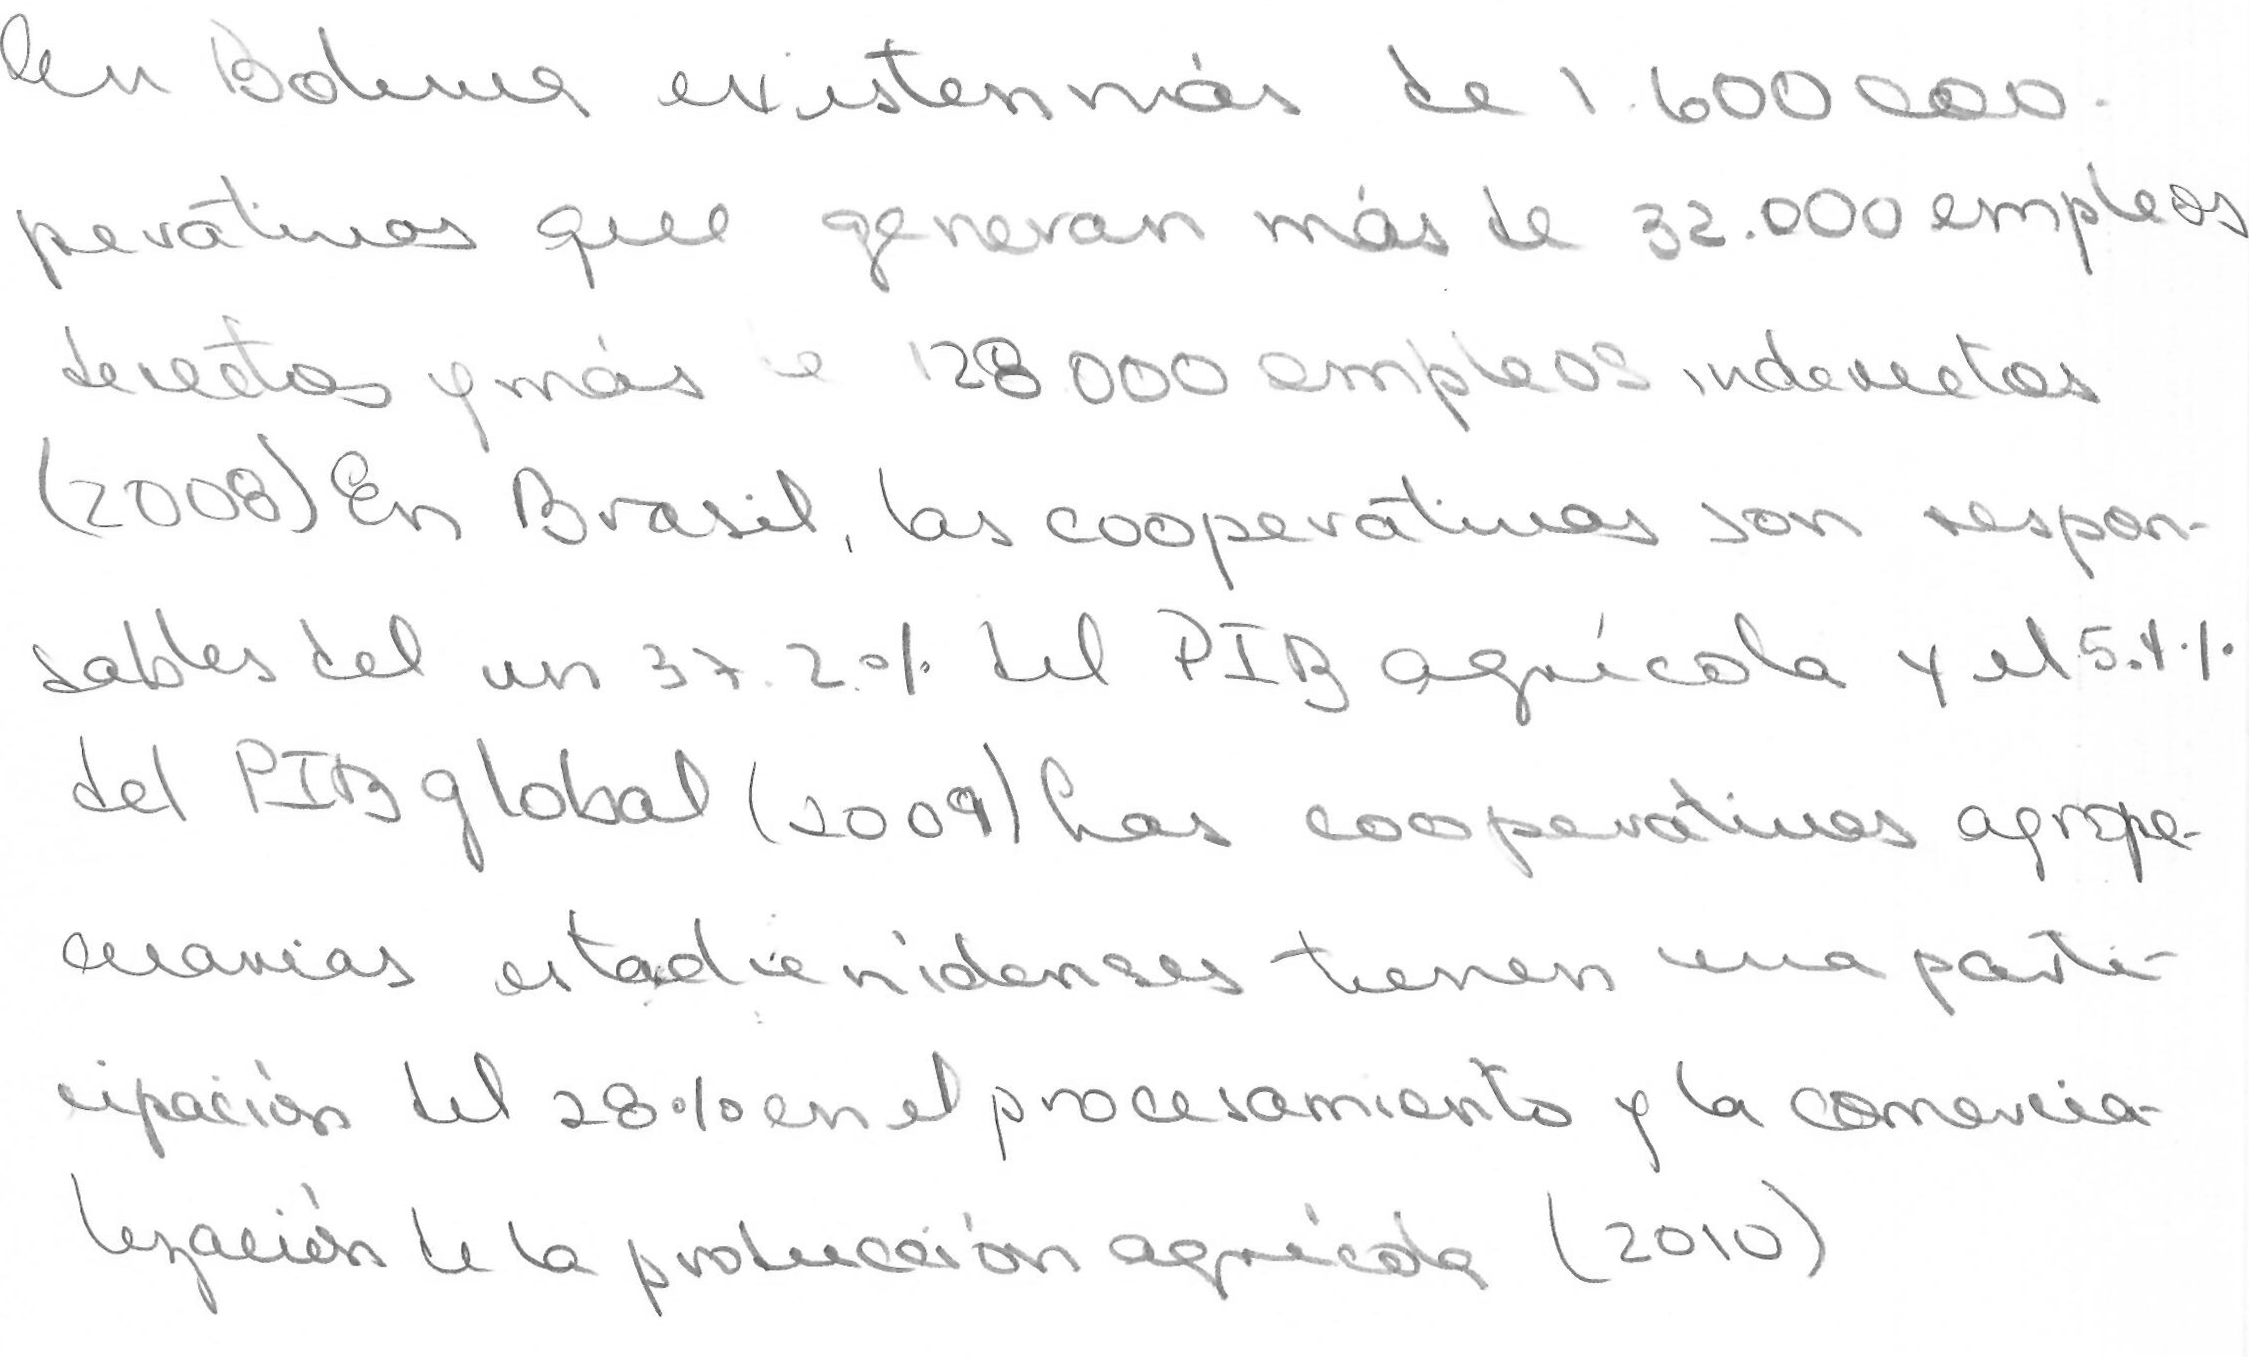 En Bolivia existen más de 1.600 coo-
perativas que generan más de 32.000 empleos
directos y más de 128.000 empleos indirectos
(2008) En Brasil, las cooperativas son respon-
sables del un 37.2.% del PIB agrícola y el 5.4.%
del PIB global (2009) Las cooperativas agrope-
cuarias estadounidenses tienen una parti-
cipación del 28% en el procesamiento y la comercia-
lización de la producción agrícola (2010)